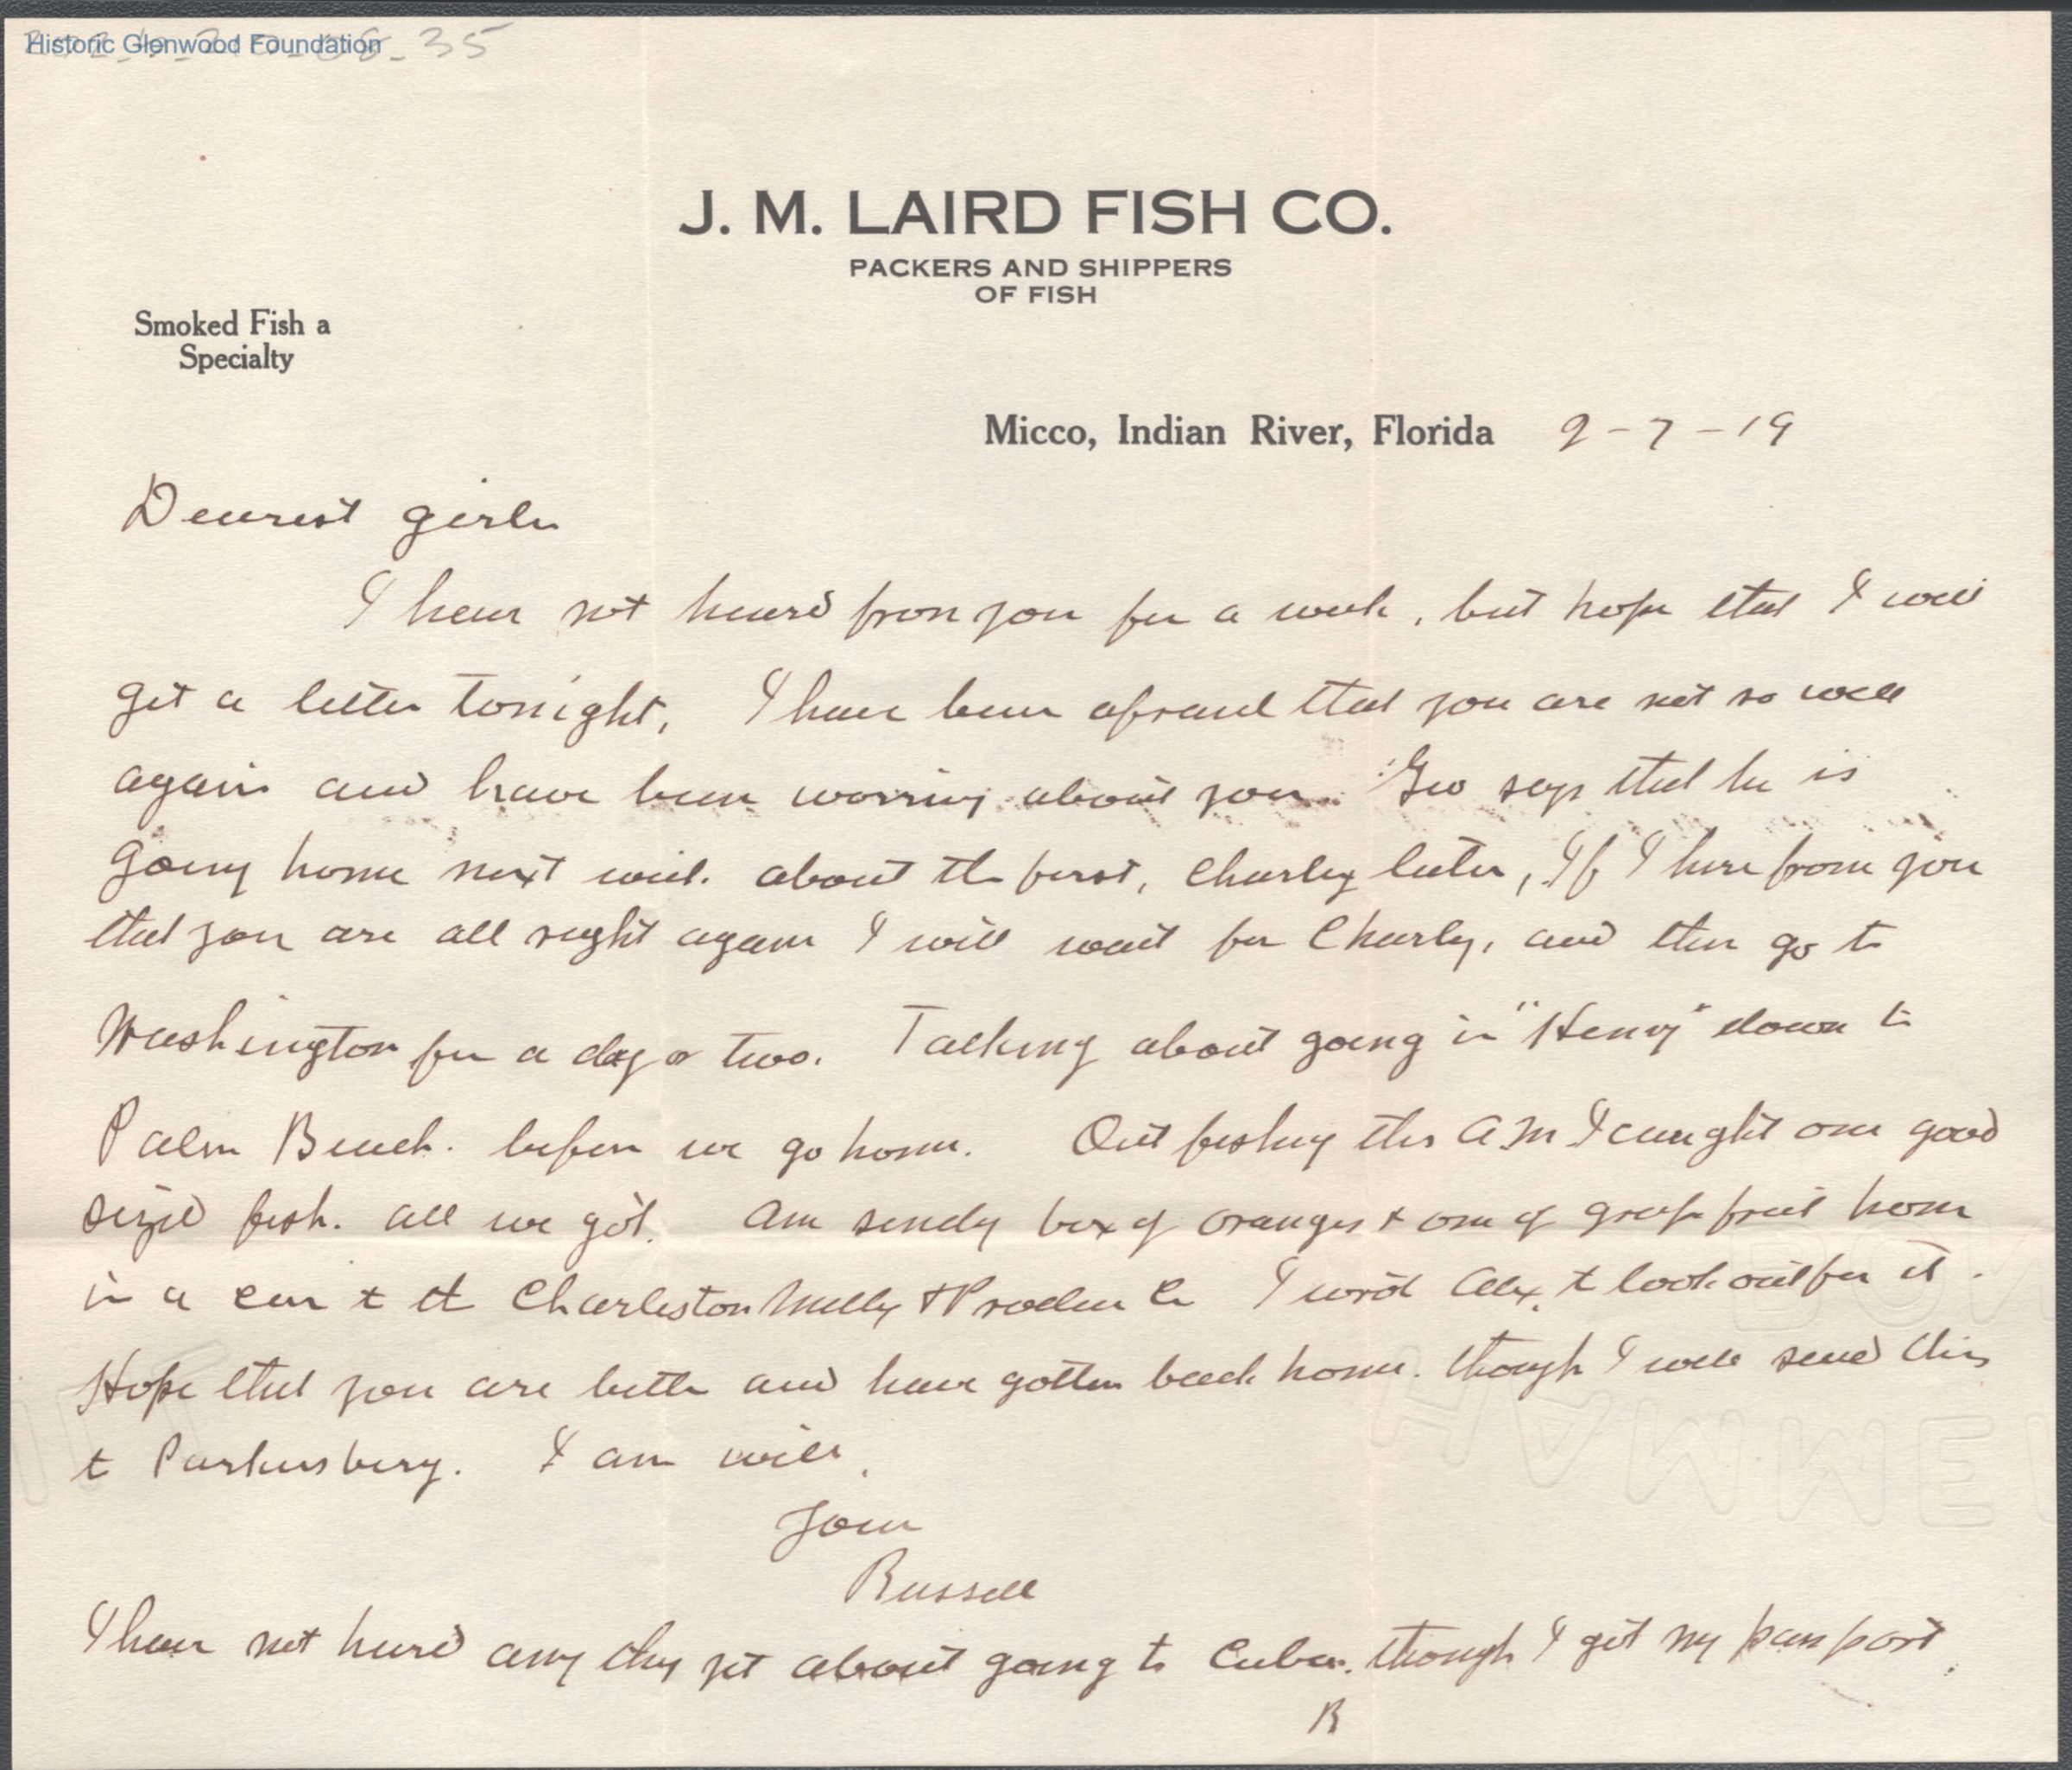 Historic Glenwood Foundation
35
J. M. LAIRD FISH CO.
PACKERS AND SHIPPERS
OF FISH
Smoked Fish a
Specialty
Micco, Indian River, Florida 2-7-19
Dearest girlie
I have not heard from you for a week, but hope that I will
get a letter tonight, I have been afraid that you are not so well
again and have been worring about you. Geo says that he is
going home next week. about the first, Charley later, If I here from you
that you are all right again I will wait for Charly, and then go to
Washington for a day or two. Talking about going in "Henry" down to
Palm Beach. before we go home. Out fishing this A.M I caught one good
sized fish. all we got. Am sendg box of oranges & one of grape fruit home
in a car to the Charleston Milling & Produce Co I word Alex. to look out for it.
Hope that you are better and have gotten back home. though I will send this
to Parkersburg. I am well,
Your
Russell
I have not heard any thing yet about going to Cuba. though I got my passport.
R
HAMME